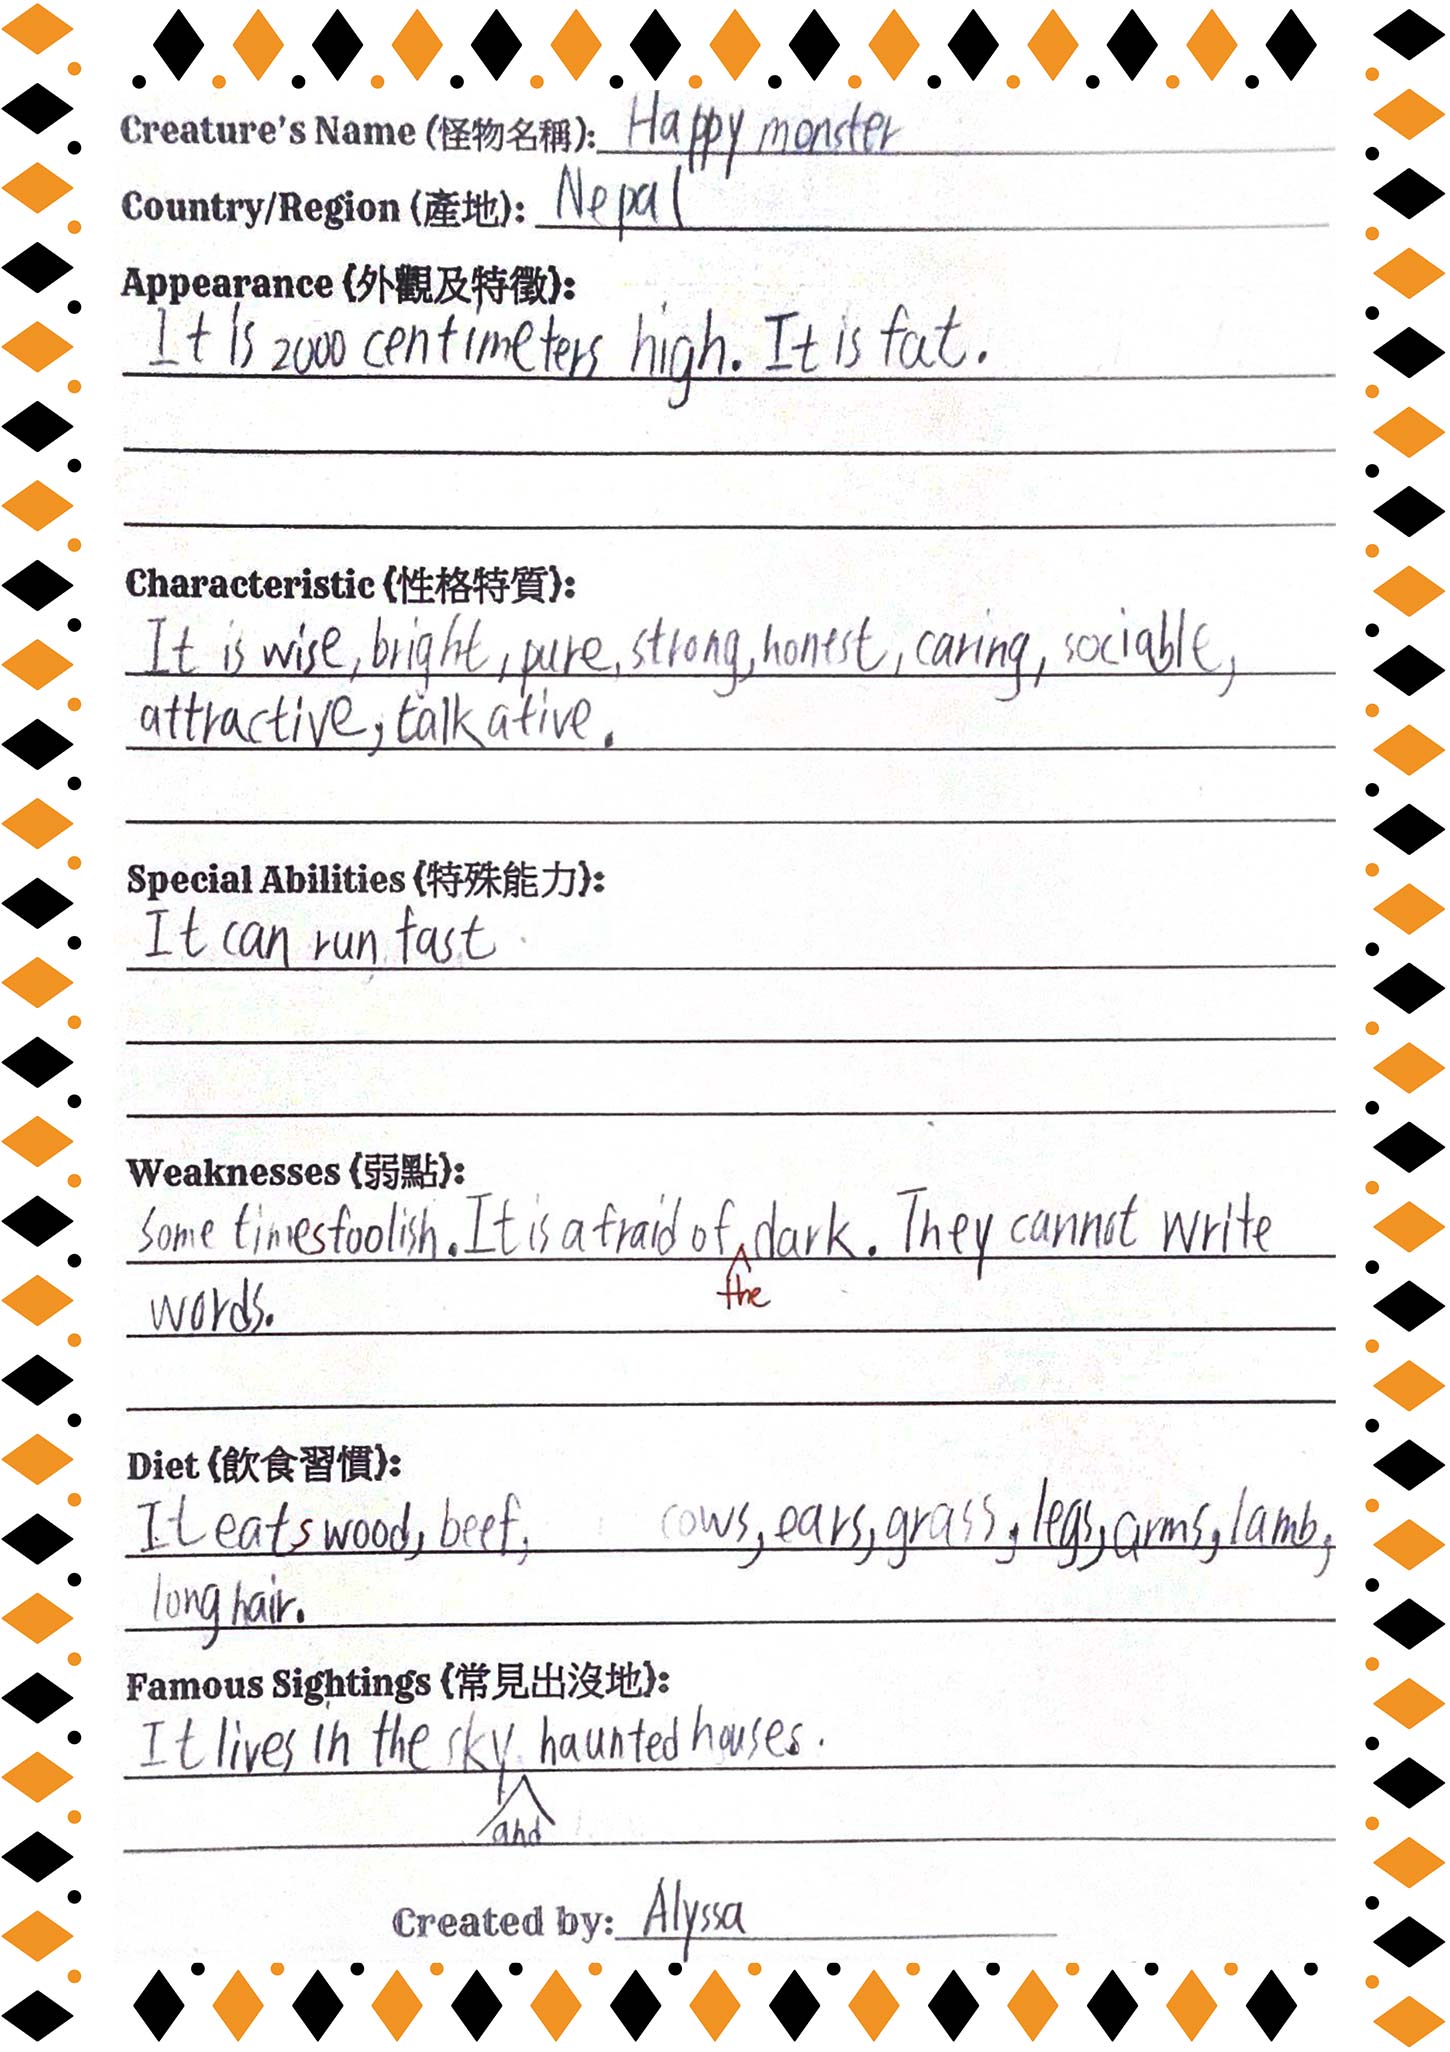 Creature's Name (怪物名稱): Happy monster
Country/Region (產地): Nepal
Appearance (外觀及特徵):
It is 2000 centimeters high. It is fat.
Characteristic (性格特質):
It is wise, bright, pure, strong, honest, caring, sociable,
attractive, talkative.
Special Abilities (特殊能力):
It can run fast
Weaknesses (弱點):
Some times foolish. It is afraid of the dark. They cannot write
words.
Diet (飲食習慣):
It eats wood, beef, cows, ears, grass, legs, arms, lamb,
long hair.
Famous Sightings (常見出沒地):
It lives in the sky and haunted houses.
Created by: Alyssa